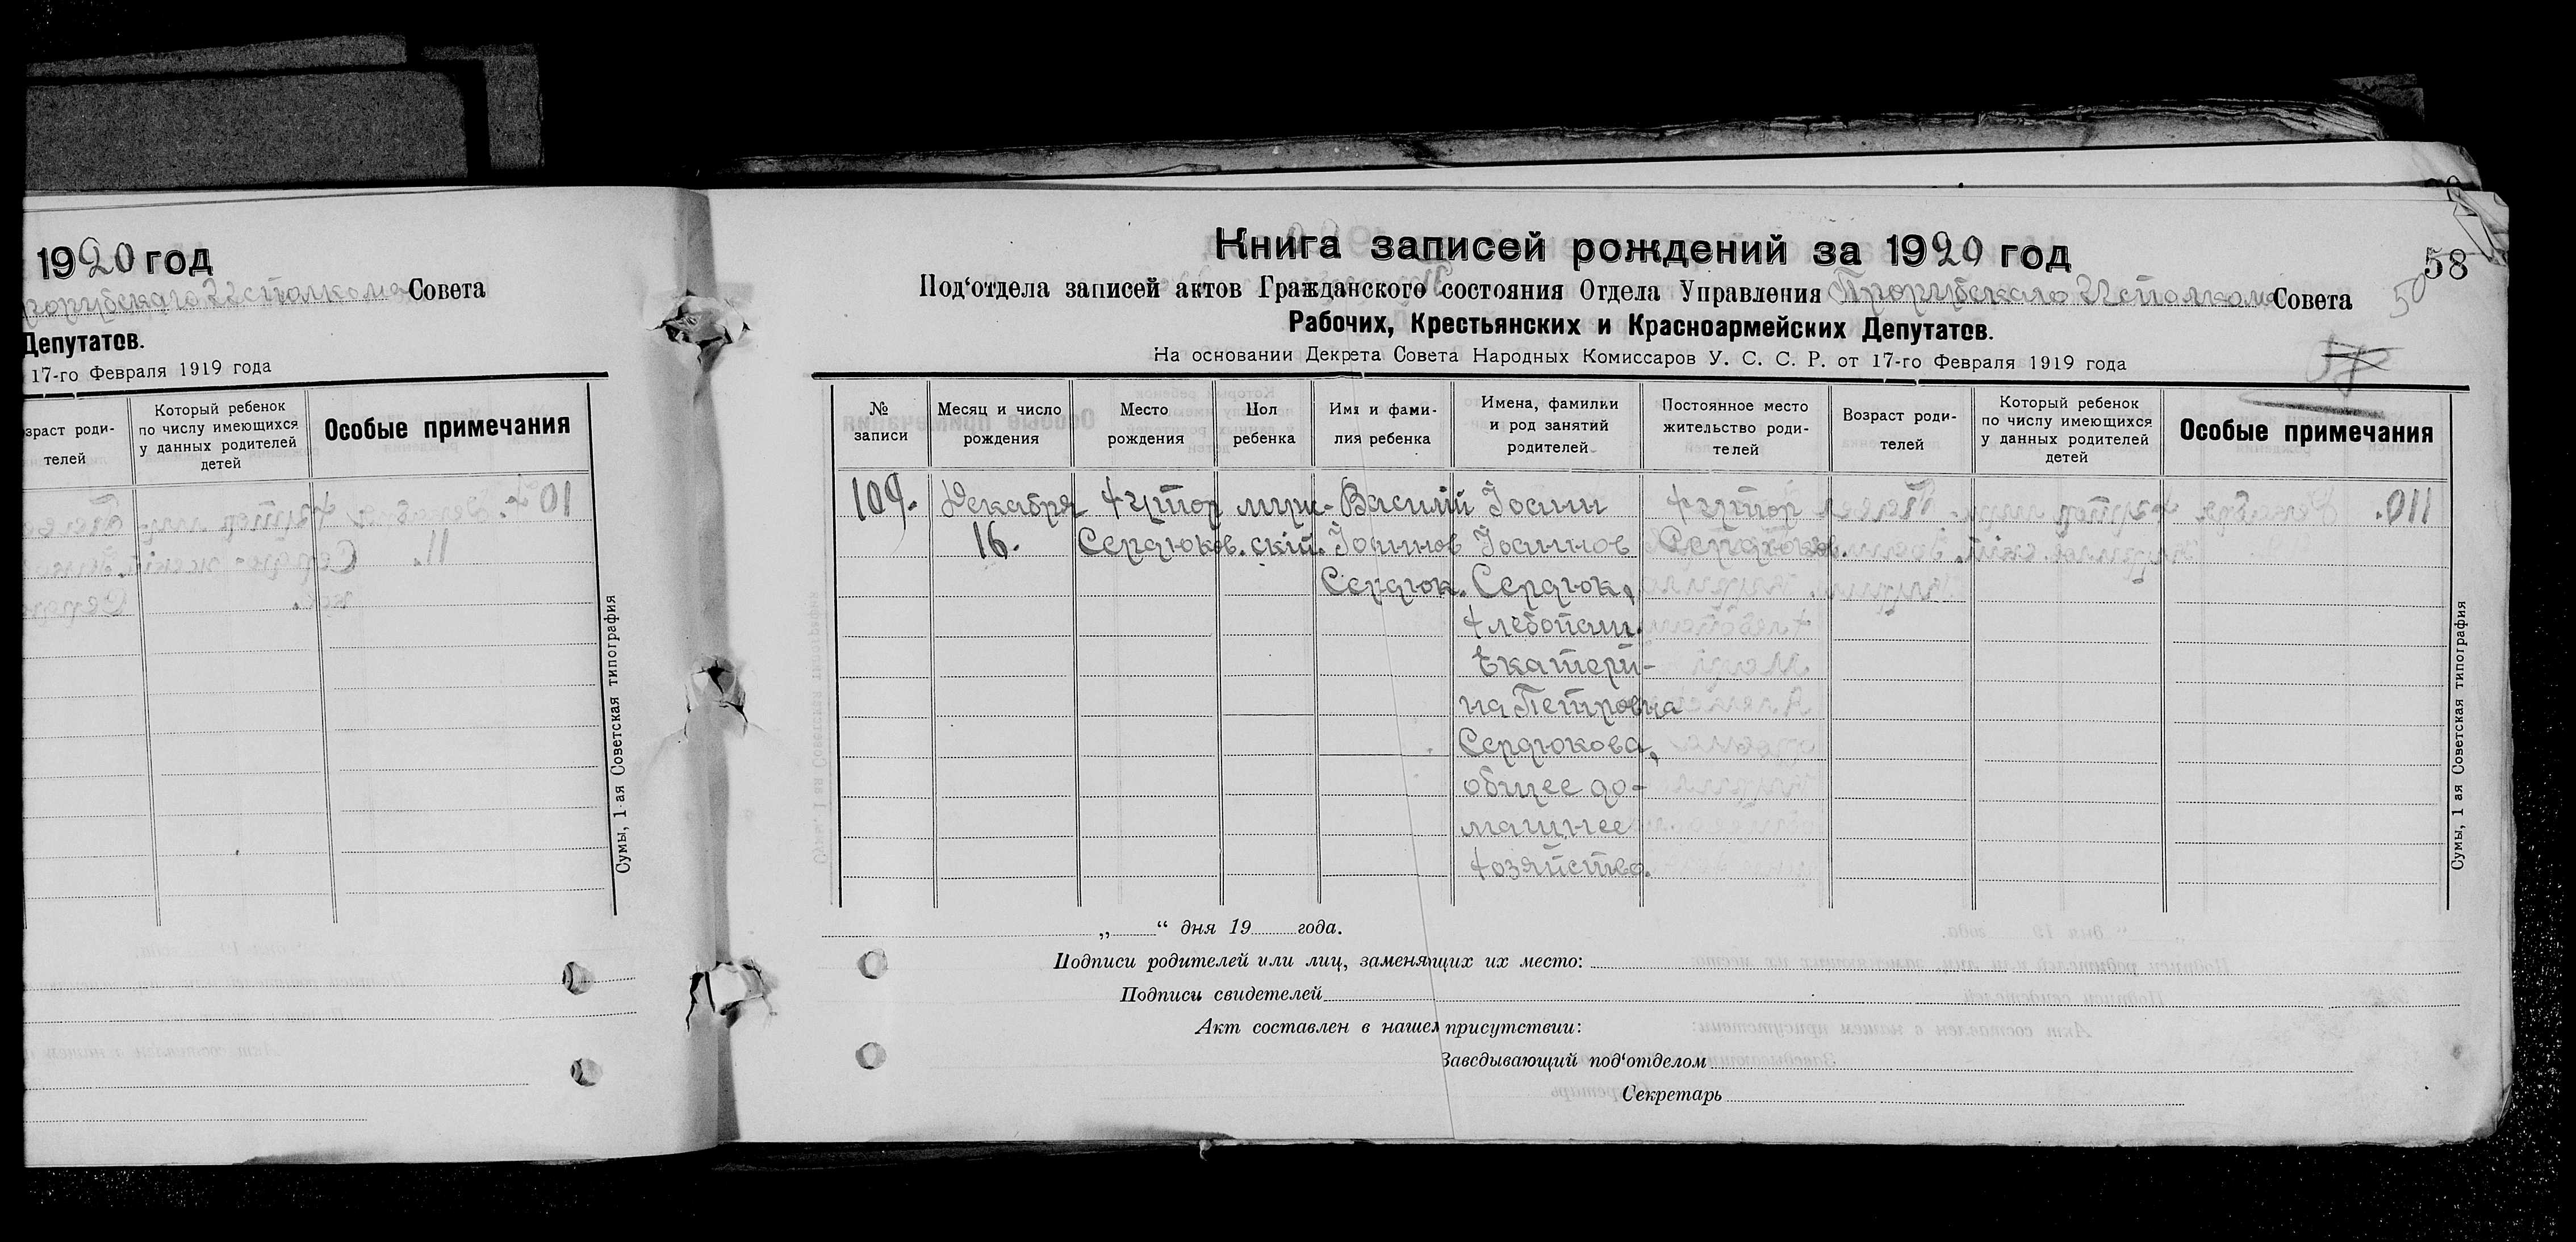 1920 год
Совета
Депутатов.
17-го Февраля 1919 года
зраст роди-
телей
Который ребенок
по числу имеющихся
у данных родителей
детей
Особые примечания
Сумы, 1-ая Советская типография
58
50
57
Книга записей рождений за 1920 год
Под‘отдела записей актов Гражданского состояния Отдела Управления Прорубскаго Исполкома Совета
Рабочих, Крестьянских и Красноармейских Депутатов.
На основании Декрета Совета Народных Комиссаров У. С. С. Р. от 17-го Февраля 1919 года
№
записи
Месяц и число
рождения
Место
рождения
Пол
ребенка
Имя и фами-
лия ребенка
Имена, фамилии
и род занятий
родителей
Постоянное место
жительство роди-
телей
Возраст роди-
телей
Который ребенок
по числу имеющихся
у данных родителей
детей
Особые примечания
109. Декабря Хутор муж- Василій Іоанн Хутор
16. Сердюков. скій. Іоаннов Іоаннов Сердюков.
Сердюк. Сердюк,
хлебопаш.
Екатери-
на Петровна
Сердюкова,
общее до-
машнее
хозяйство.
„ “ дня 19 года.
Подписи родителей или лиц, заменящих их место:
Подписи свидетелей
Акт составлен в нашем присутствии:
Заведывающий под‘отделом
Секретарь
Сумы, 1 ая Советская типография